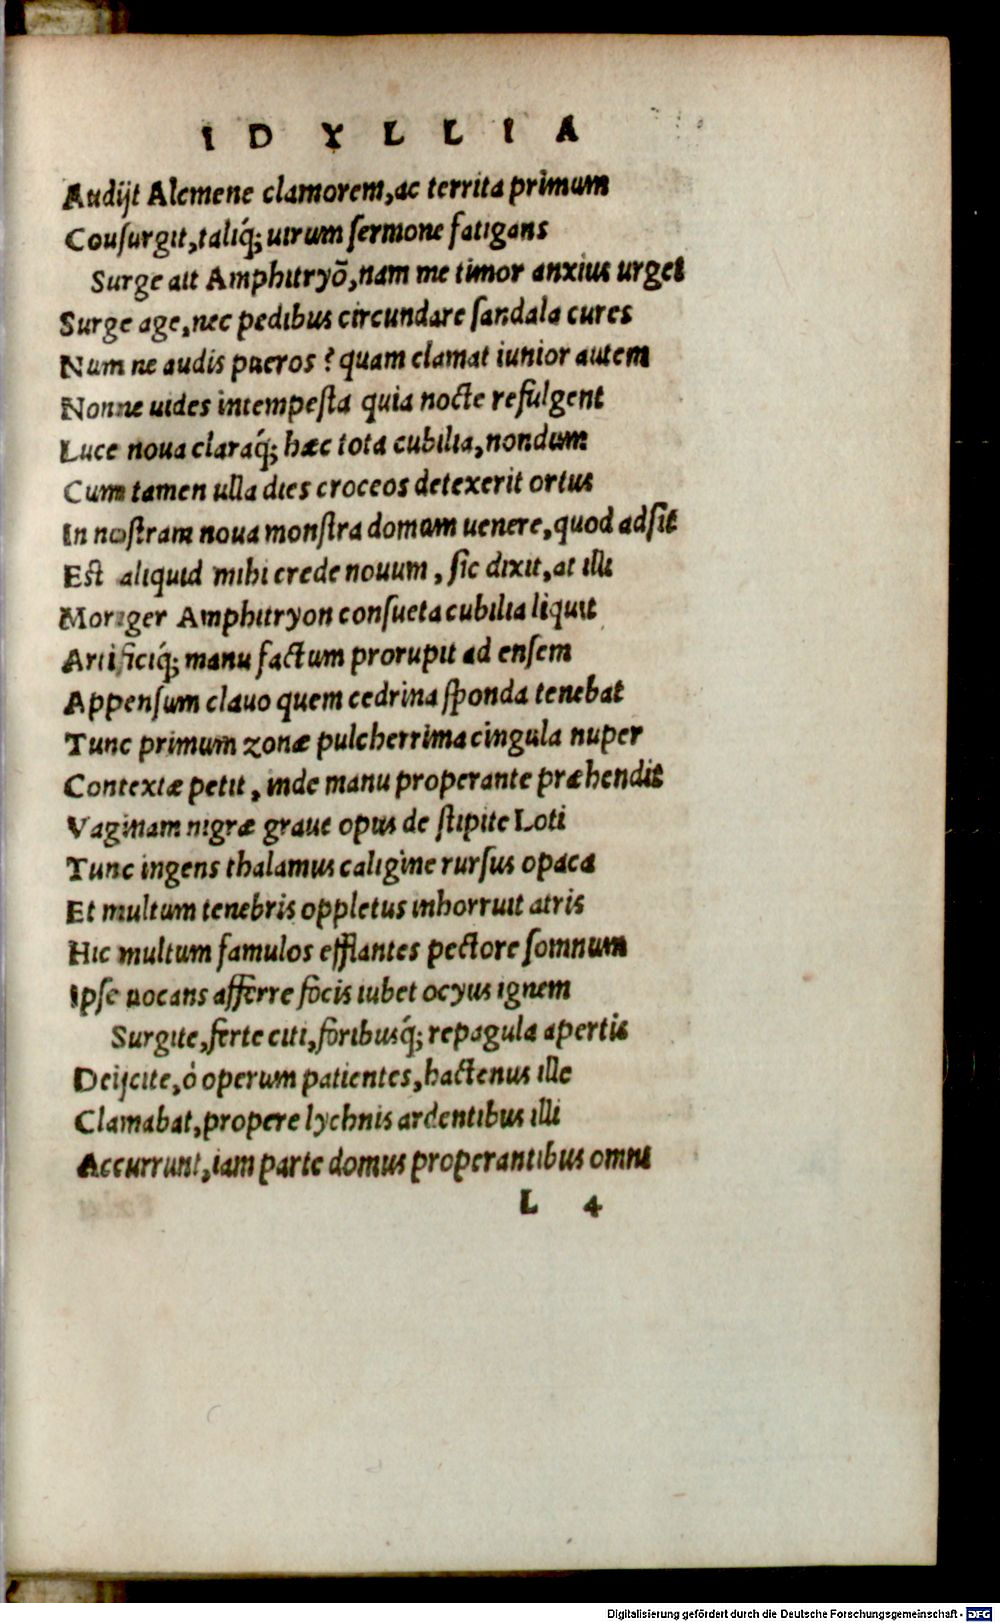 IDYLLIA
Audijt Alcmene clamorem, ac territa primum
Cousurgit, taliq́; uirum sermone fatigans
Surge ait Amphitryõ, nam me timor anxius urget
Surge age, nec pedibus circundare sandala cures
Num ne audis pueros? quam clamat iunior autem
Nonne uides intempesta quia nocte refulgent
Luce noua claraq́; hæc tota cubilia, nondum
Cum tamen ulla dies croceos detexerit ortus
In nostram noua monstra domum uenere, quod adsit
Est aliquid mihi crede nouum, sic dixit, at illi
Moriger Amphitryon consueta cubilia liquit
Artificiq́; manu factum prorupit ad ensem
Appensum clauo quem cedrina sponda tenebat
Tunc primum zonæ pulcherrima cingula nuper
Contextæ petit, inde manu properante præhendit
Vaginam nigræ graue opus de stipite Loti
Tunc ingens thalamus caligine rursus opaca
Et multum tenebris oppletus inhorruit atris
Hic multum famulos efflantes pectore somnum
Ipse uocans afferre focis iubet ocyus ignem
Surgite, ferte citi, foribusq́; repagula apertis
Deijcite, ò operum patientes, hactenus ille
Clamabat, propere lychnis ardentibus illi
Accurrunt, iam parte domus properantibus omni
L 4
Digitalisierung gefördert durch die Deutsche Forschungsgemeinschaft - DFG